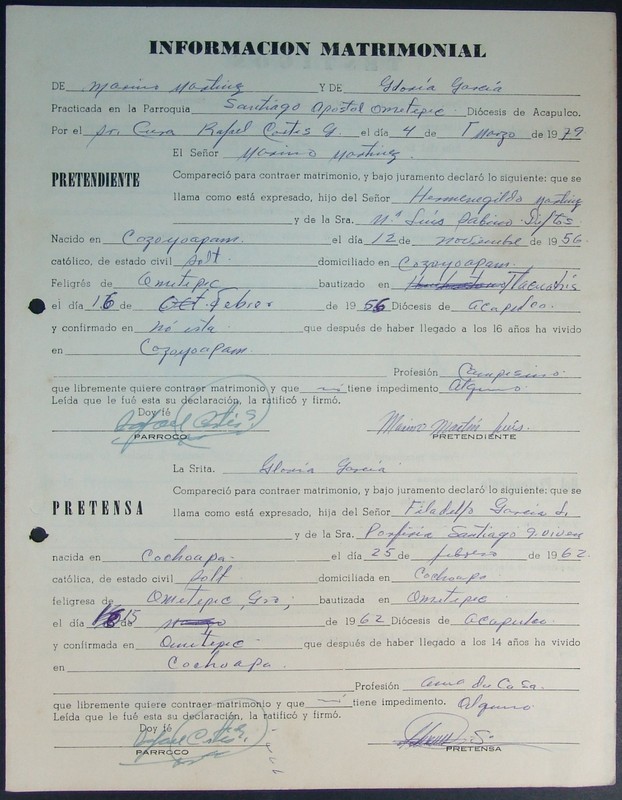 INFORMACION MATRIMONIAL
DE Marino Martinez Y DE Gloria García
Practicada en la Parroquia Santiago Apostol Ometepec Diócesis de Acapulco.
Por el Sr. Cura Rafael Cortes G. el día 4 de Marzo de 1979
El Señor Marino Martinez.
PRETENDIENTE
Compareció para contraer matrimonio, y bajo juramento declaró lo siguiente: que se
llama como está expresado, hijo del Señor Hermenegildo Martinez
y de la Sra. Mª Luis Sabino
Nacido en Cozoyoapam. el día 12 de noviembre de 1956.
católico, de estado civil Solt domiciliado en Cozoyoapam.
Feligrés de Ometepec bautizado en
el día 16 de Febrer de 1956 Diócesis de Acapulco.
y confirmado en no ista que después de haber llegado a los 16 años ha vivido
en Cozoyoapam.
Profesión Campesino.
que libremente quiere contraer matrimonio y que ni tiene impedimento Alguno.
Leída que le fué esta su declaración, la ratificó y firmó.
Doy fé
Rafael Cortes G
PARROCO
PRETENDIENTE
La Srita. Gloria García
PRETENSA
Compareció para contraer matrimonio, y bajo juramento declaró lo siguiente: que se
llama como está expresado, hija del Señor Filadelfo García
y de la Sra. Porfiria Santiago q. viven
nacida en Cochoapa. el día 25 de febrero de 1962.
católica, de estado civil Solt domiciliada en Cochoapa
feligresa de Ometepec, Gro, bautizada en Ometepec
el día 15 de de 1962 Diócesis de Acapulco
y confirmada en Ometepec que después de haber llegado a los 14 años ha vivido
en Cochoapa.
Profesión ama de Casa.
que libremente quiere contraer matrimonio y que ni tiene impedimento. Alguno
Leída que le fué esta su declaración, la ratificó y firmó.
Doy fé
Rafael Cortes G.
PARROCO
PRETENSA